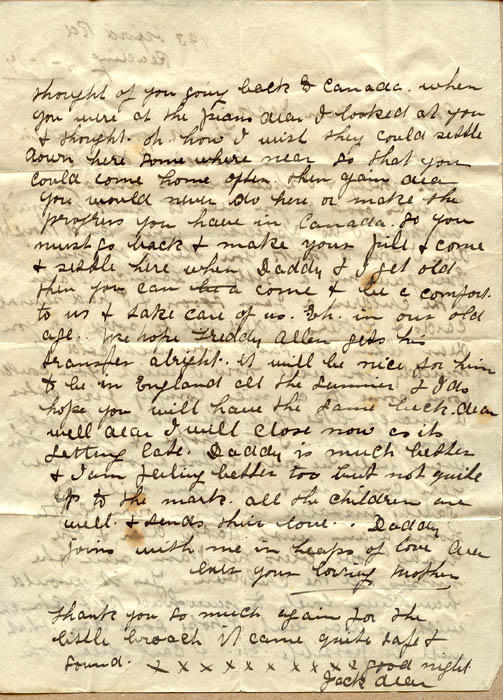 thought of you going back to Canada. when
you were at the piano dear I looked at you
& thought. oh. how I wish they could settle
down here some where near so that you
could come home often. then again dear
you would never do here or make the
progress you have in Canada. so you
must go back & make your pile & come
& settle here when Daddy & I get old
then you can be a come & be a comfort.
to us & take care of us. Eh. in our old
age.. We hope Freddy Allen gets his
transfer alright. it will be nice for him
to be in England all the summer & I do
hope you will have the same luck. dear
well dear I will close now as its
getting late. Daddy is much better
& I am feeling better too but not quite
up to the mark. all the children are
well. & sends their love.. Daddy
joins with me in heaps of love dear
ever your loving Mother
thank you so much again for the
little broach it came quite safe &
sound. x x x x x x x x x x good night
Jack dear